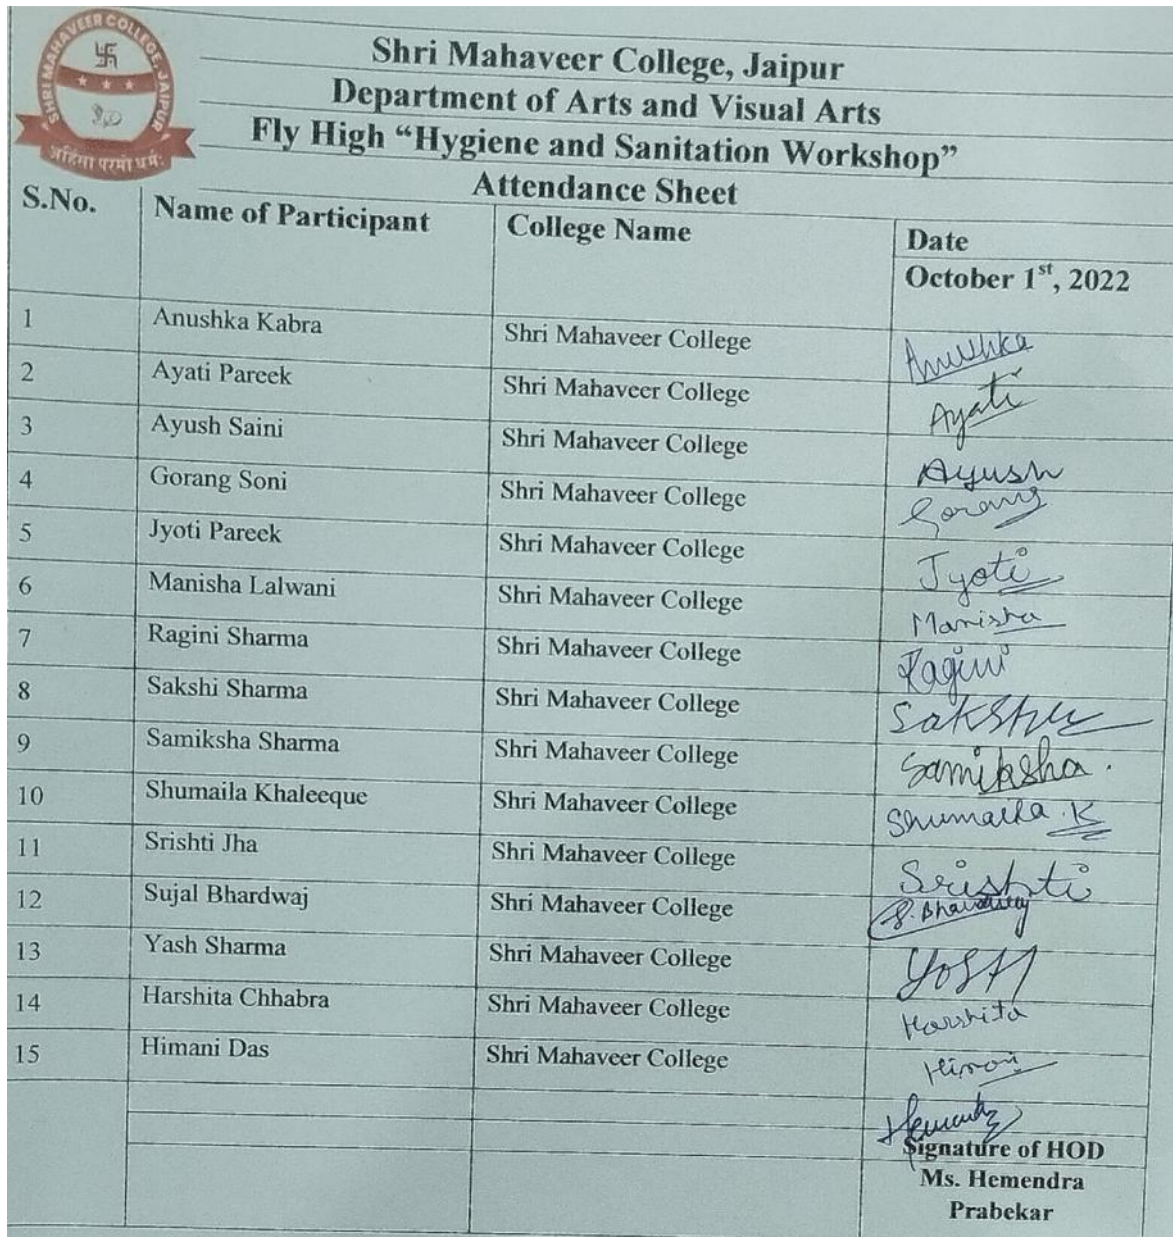 SHRI MAHAVEER COLLEGE, JAIPUR
अहिंसा परमो धर्म:
Shri Mahaveer College, Jaipur
Department of Arts and Visual Arts
Fly High “Hygiene and Sanitation Workshop”
Attendance Sheet
S.No. Name of Participant College Name Date
October 1st, 2022
1 Anushka Kabra Shri Mahaveer College Anushka
2 Ayati Pareek Shri Mahaveer College Ayati
3 Ayush Saini Shri Mahaveer College Ayush
4 Gorang Soni Shri Mahaveer College Gorang
5 Jyoti Pareek Shri Mahaveer College Jyoti
6 Manisha Lalwani Shri Mahaveer College Manisha
7 Ragini Sharma Shri Mahaveer College Ragini
8 Sakshi Sharma Shri Mahaveer College Sakshi
9 Samiksha Sharma Shri Mahaveer College Samiksha.
10 Shumaila Khaleeque Shri Mahaveer College Shumaila .K
11 Srishti Jha Shri Mahaveer College Srishti
12 Sujal Bhardwaj Shri Mahaveer College S. Bhardwaj
13 Yash Sharma Shri Mahaveer College YASH
14 Harshita Chhabra Shri Mahaveer College Harshita
15 Himani Das Shri Mahaveer College Himani
Signature of HOD
Ms. Hemendra
Prabekar